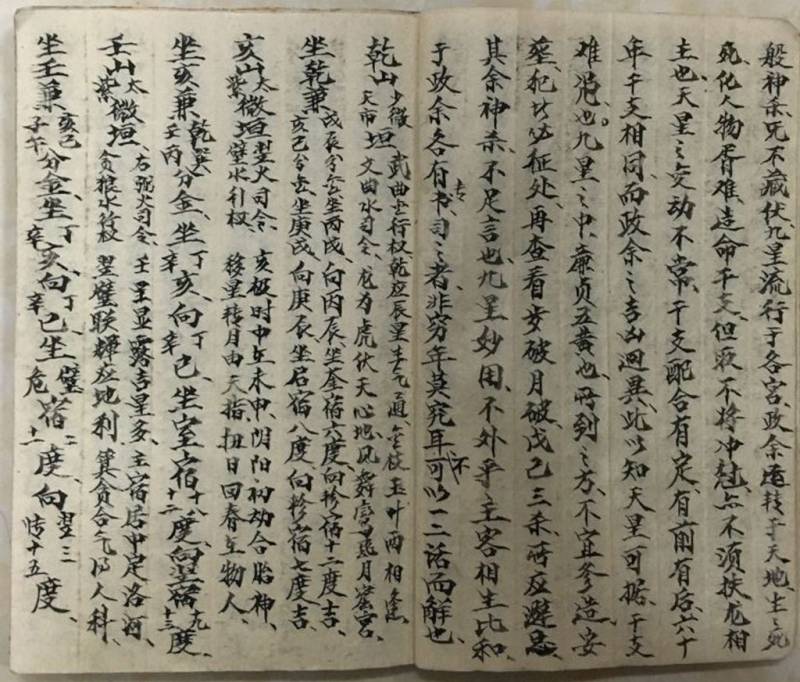 般神杀咒不藏伏、九星流行于各宫、政余运转于天地、生生死
死、化人物胥难、造命干支、但取不将冲尅、亦不须扶龙相
主也、天星之交动不常、干支配合有定、有前有后、六十
年干支相同、而政余之吉凶迥异、此以知天星可据、干支
难凭也。九星之中、廉贞五黄也、所到之方、不宜参造、安
葬、犯此必征处、再查看步破月破戊己三杀、所应避忌、
其余神杀、不足言也、九星妙用、不外乎主客相生比和、
于政余各有专书、司之者、非穷年莫究耳、不可以一二话而解也、
乾山少微天市垣、武曲金行权、乾应辰星、文曲水司令、龙为虎伏天心地、金枝玉叶两相
坐乾兼戌辰分金坐丙戌、向丙辰、坐奎宿六度、向轸宿十二度、吉、
亥己分金、坐庚戌、向庚辰、坐宿八度、向轸宿七度、吉、
亥山太紫微垣翌火司令、璧水行权、亥极时中在未申、阴阳初动合胎神、移星转月由天指、扭日回春在物人、
坐亥兼乾巽壬丙分金、坐丁辛亥、向丁辛巳、坐室宿十八十二度、向翌宿九十三度、
壬山太紫微垣、右弼火司令、贪狼水行权、壬星显露吉星多、主宿居中定洛河、翌璧联辉应地利、箕贪合气得人科、
坐壬兼亥己子午分金、坐丁辛亥、向丁辛已、坐璧危宿二十一度、向翌三张十五度、